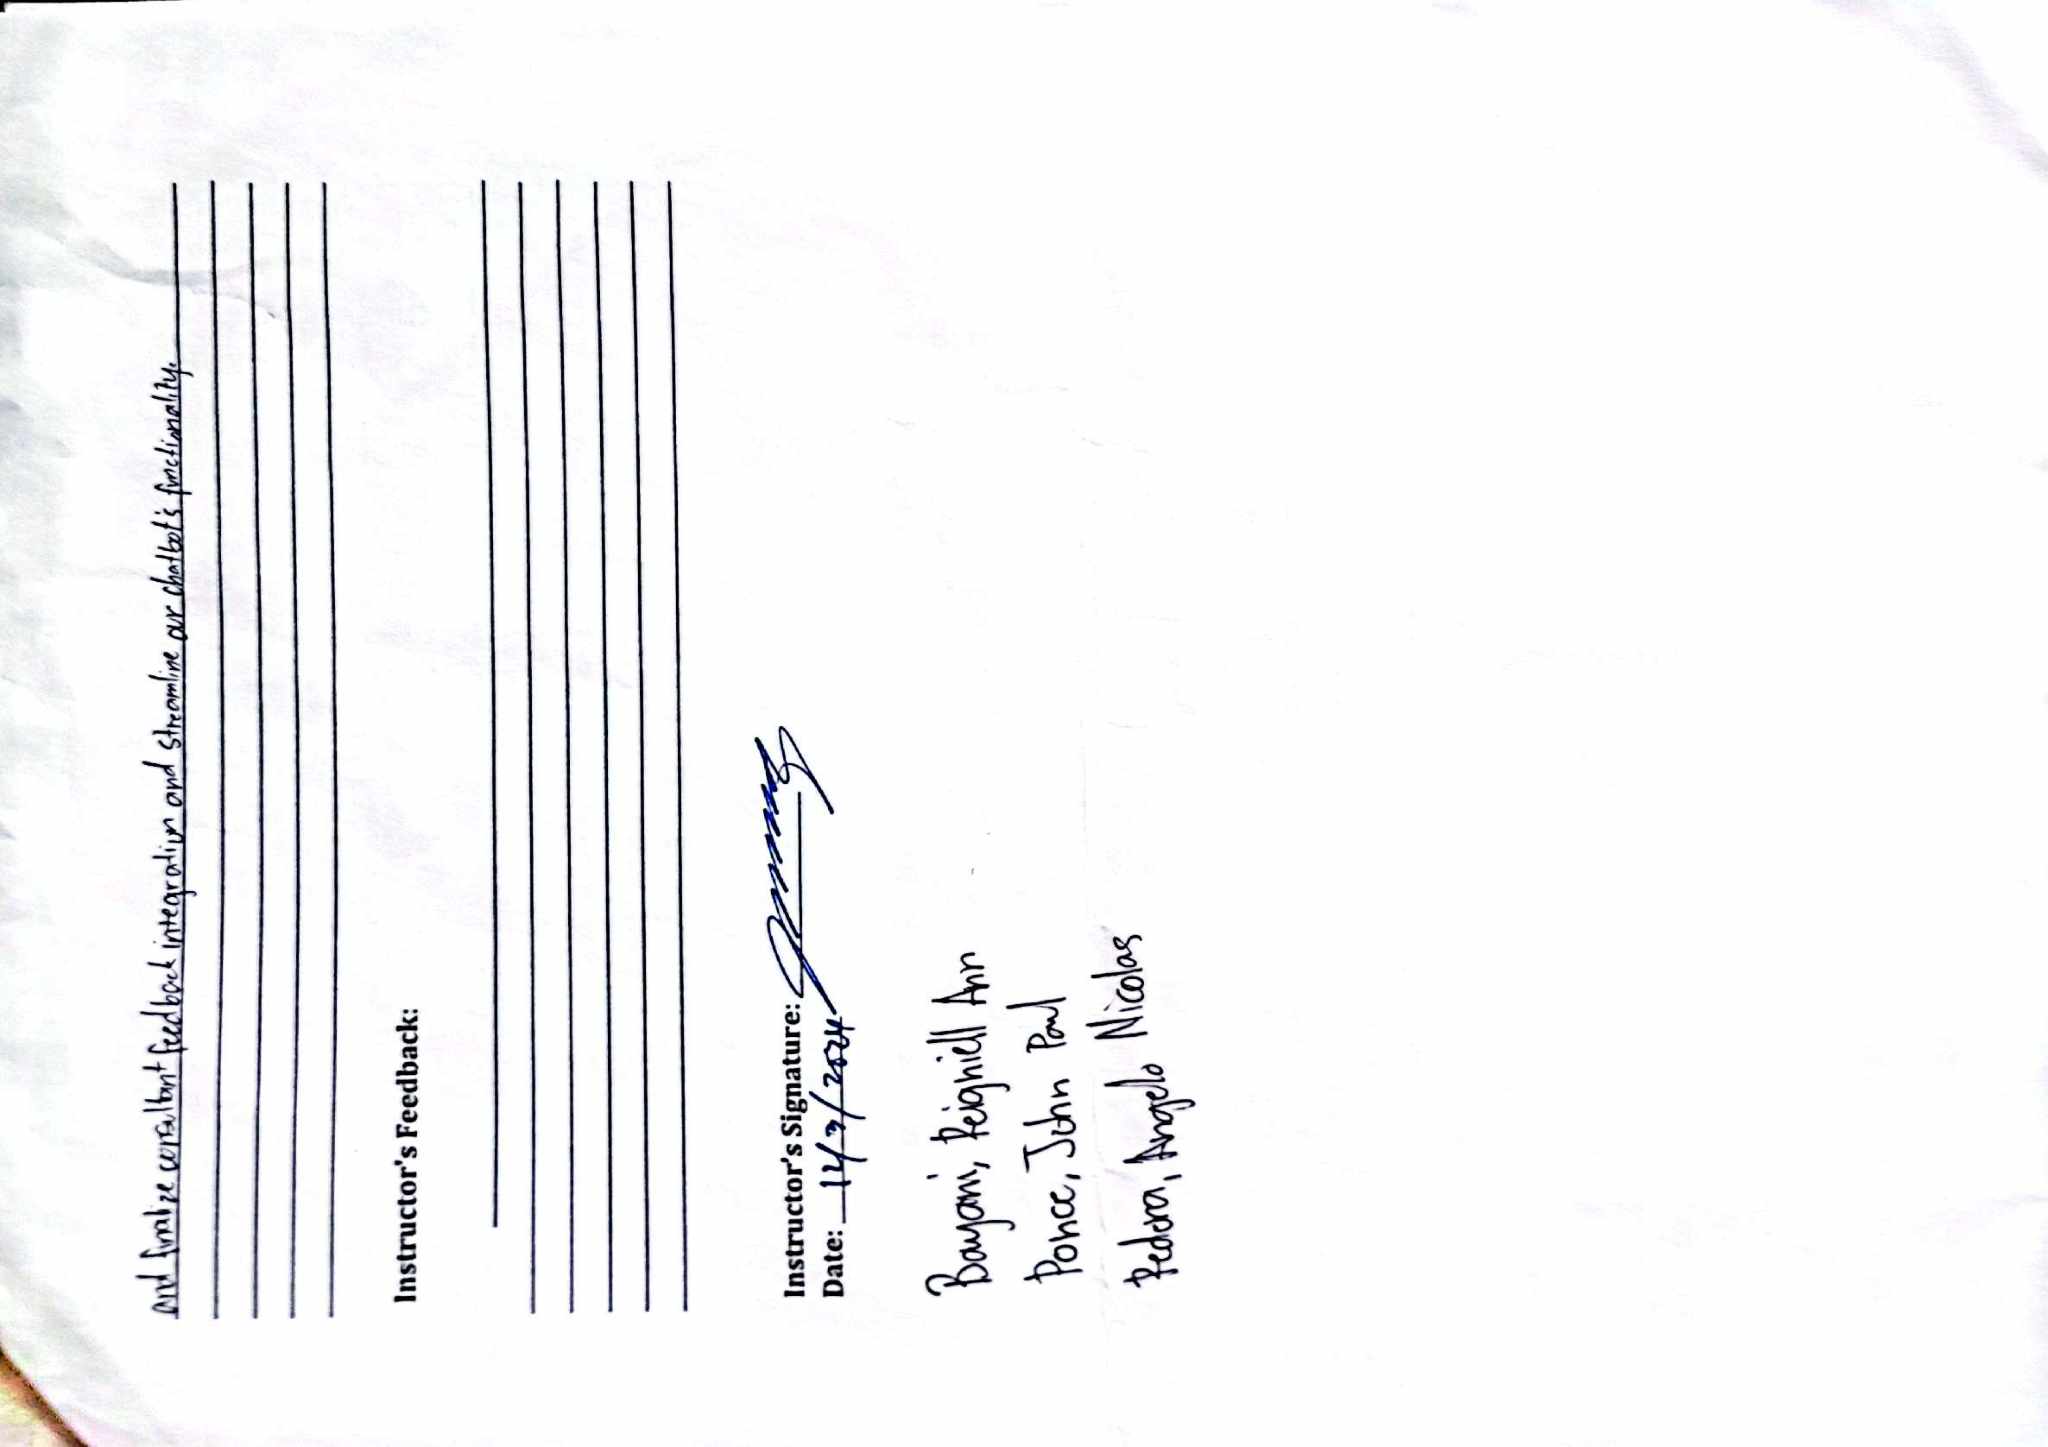 and finalize consultant feedback integration and streamline our chatbot's functionality.
Instructor's Feedback:
Instructor's Signature:
Date: 12/3/2024
Bayani, Reigniell Ann
Ponce, John Paul
Pedera, Angelo Nicolas